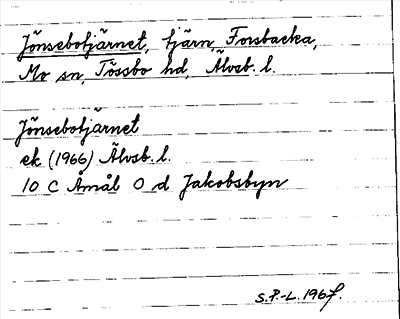 Jönsebotjärnet, tjärn, Forsbacka,
Mo sn, Tössbo hd, Älvsb. l.
Jönsebotjärnet
ek (1966) Älvsb. l.
10 C Åmål 0 d Jakobsbyn
S.P.-L. 1967.